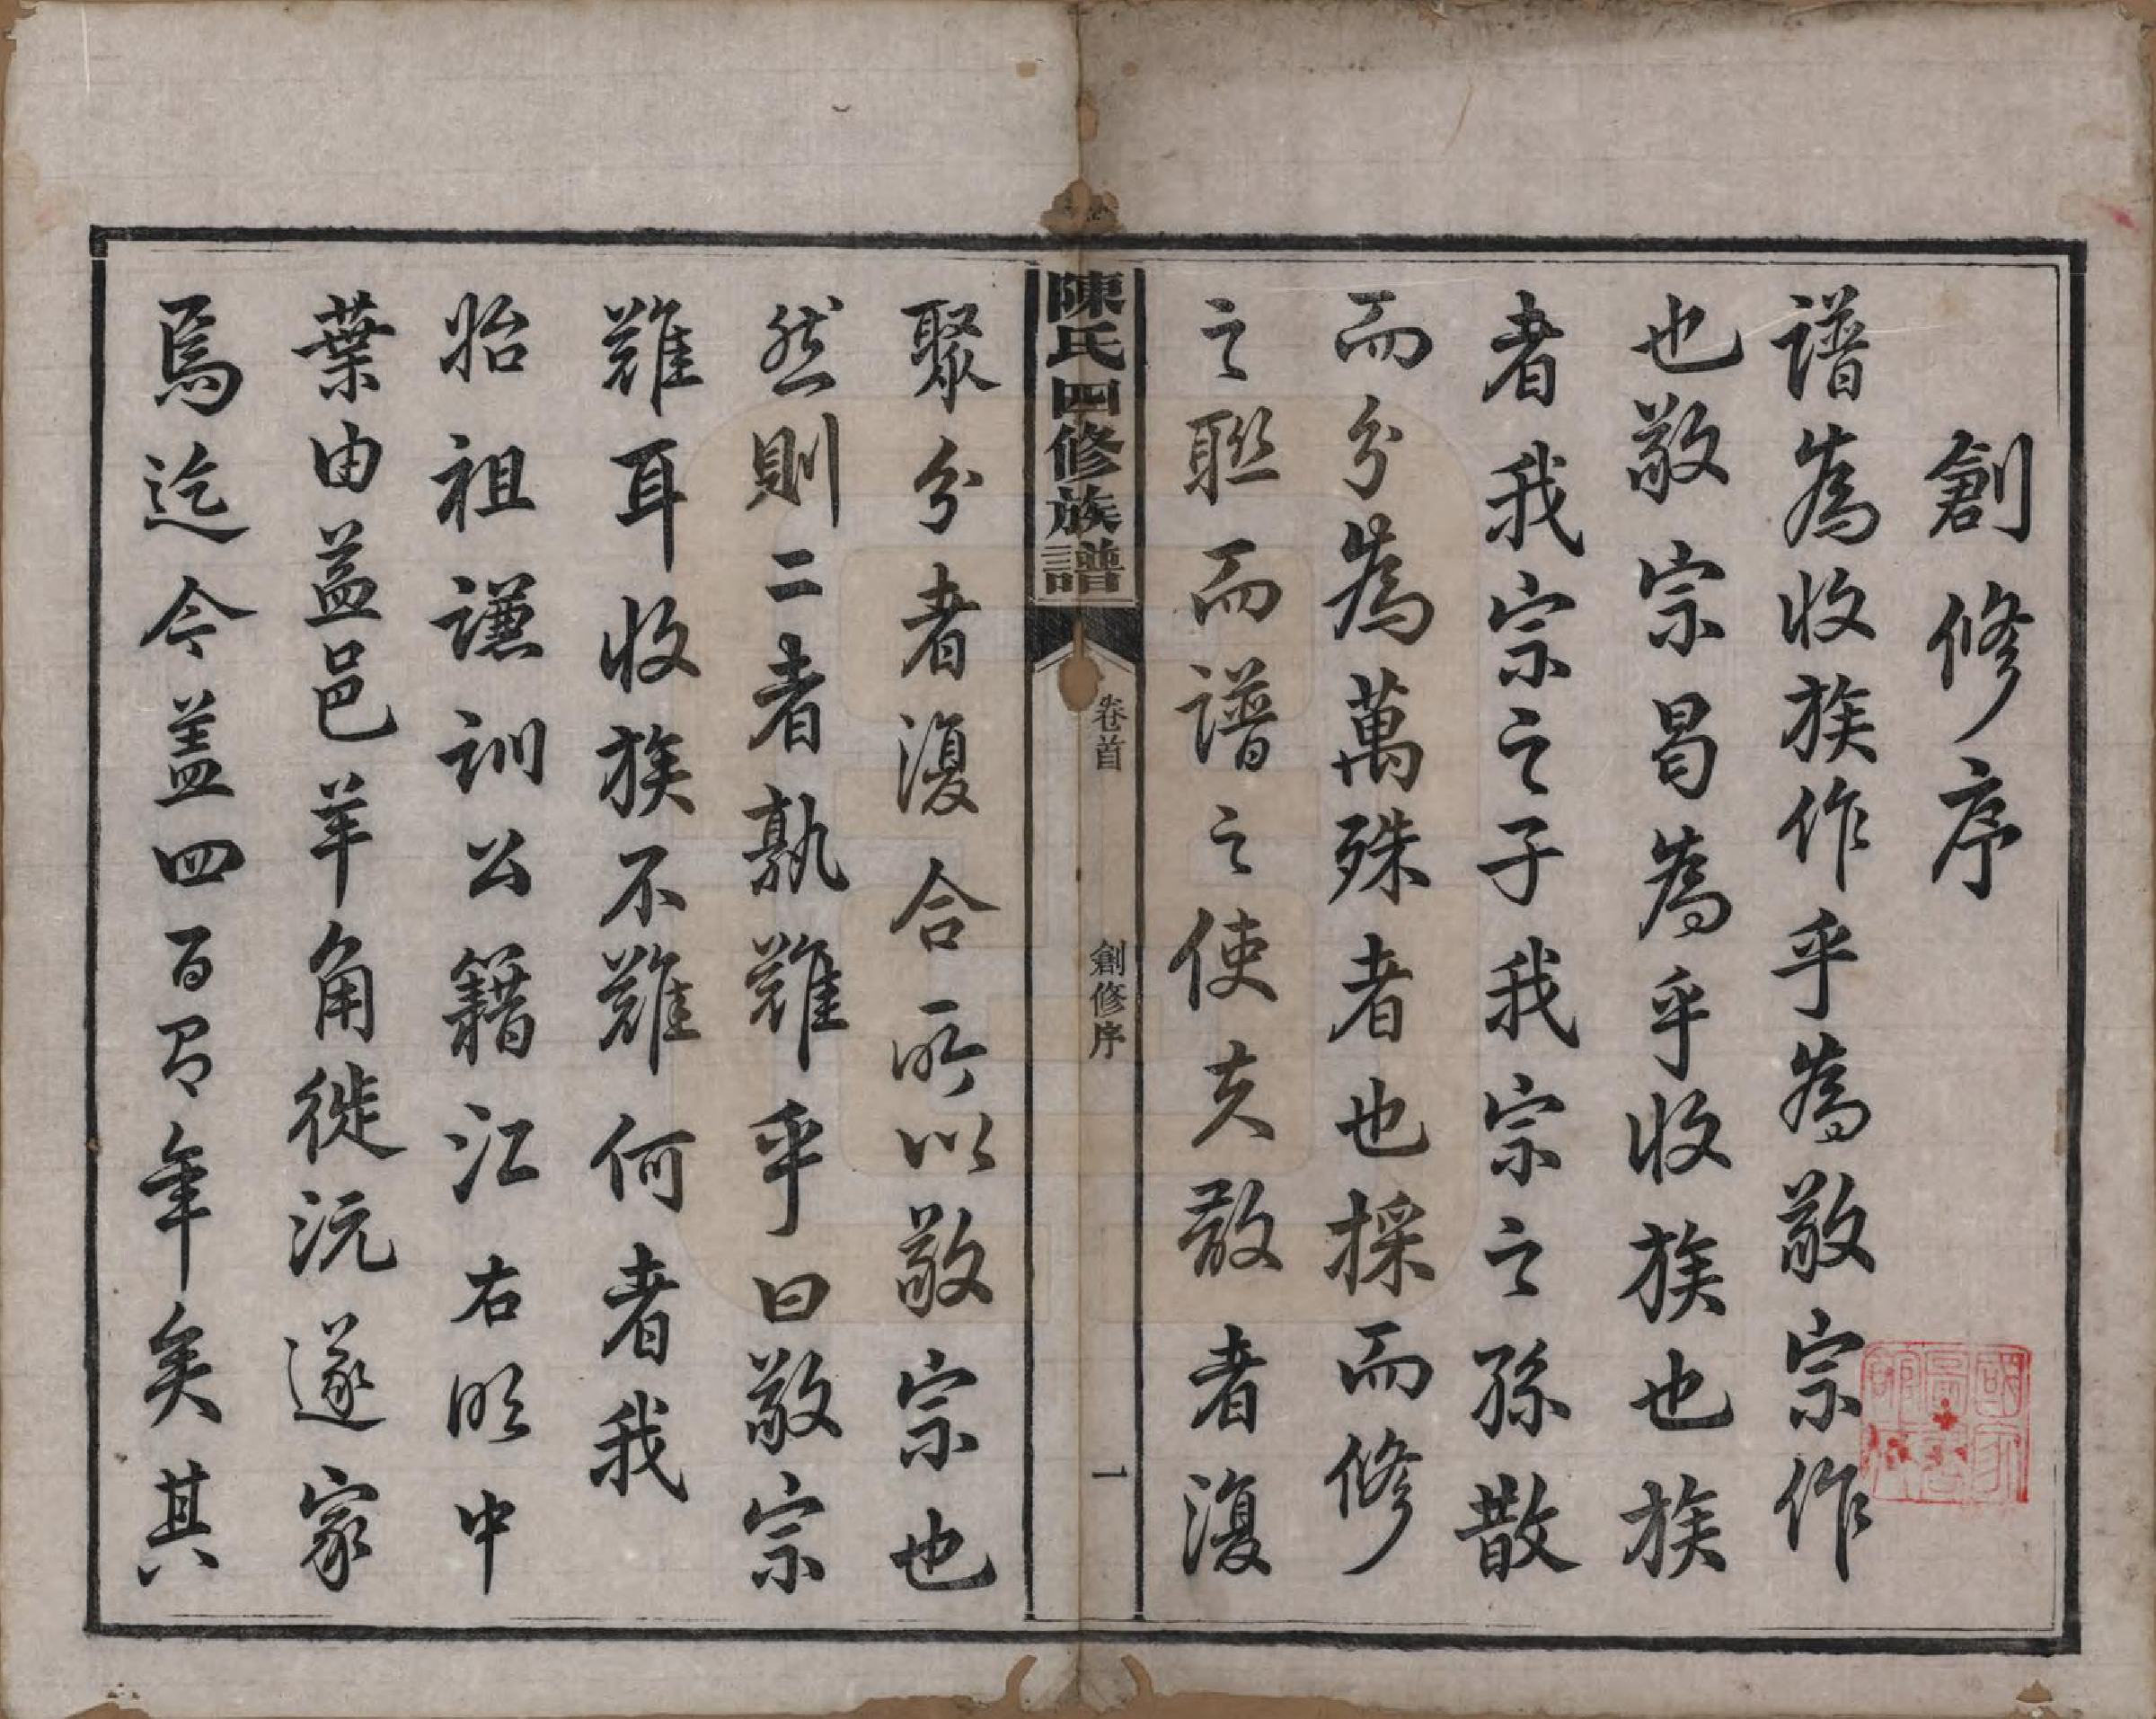 創修序
譜為收族作乎為敬宗作
也敬宗曷為乎收族也族
者我宗之子我宗之孫散
而分為萬殊者也採而修
之聯而譜之使夫散者復
陳氏四修族譜
卷首
創修序
一
聚分者復合所以敬宗也
然則二者孰難乎曰敬宗
難耳收族不難何者我
始祖謙訓公籍江右明中
葉由益邑羊角徙沅遂家
焉迄今蓋四百年矣其